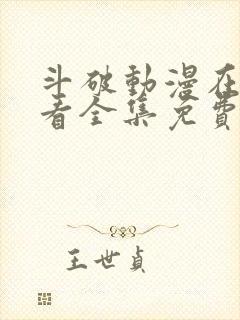 斗破動漫在
看全集免費
王世貞